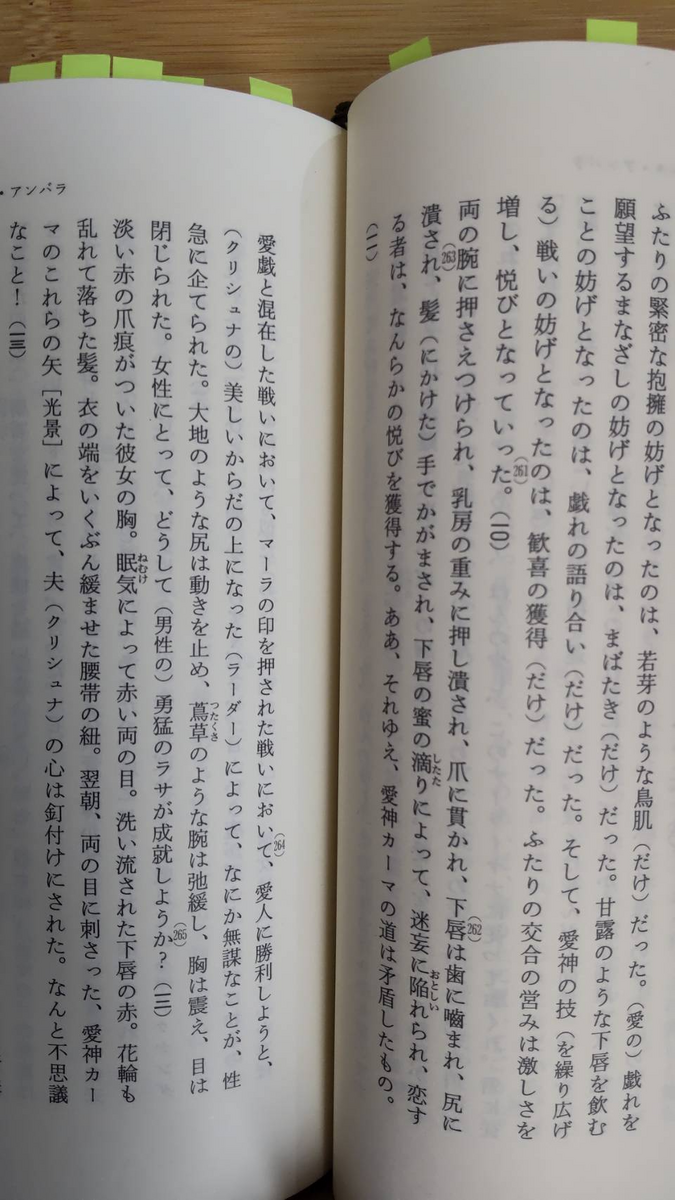 ふたりの緊密な抱擁の妨げとなったのは、若芽のような鳥肌（だけ）だった。（愛の）戯れを
願望するまなざしの妨げとなったのは、まばたき（だけ）だった。甘露のような下唇を飲む
ことの妨げとなったのは、戯れの語り合い（だけ）だった。そして、愛神の技（を繰り広げ
る）戦いの妨げとなったのは、歓喜の獲得（だけ）だった。ふたりの交合の営みは激しさを
増し、悦びとなっていった。(261)（一〇）
両の腕に押さえつけられ、乳房の重みに押し潰され、爪に貫かれ、下唇は歯に嚙まれ、(262)尻に
潰され、(263)髪（にかけた）手でかがまされ、下唇の蜜の滴(したた)りによって、迷妄に陥(おとしい)れられ、恋す
る者は、なんらかの悦びを獲得する。ああ、それゆえ、愛神カーマの道は矛盾したもの。
（一一）
・アンバラ
愛戯と混在した戦いにおいて、マーラの印を押された戦いにおいて、(264)愛人に勝利しようと、
（クリシュナの）美しいからだの上になった（ラーダー）によって、なにか無謀なことが、性
急に企てられた。大地のような尻は動きを止め、蔦草(つたくさ)のような腕は弛緩し、胸は震え、目は
閉じられた。女性にとって、どうして（男性の）勇猛のラサが成就しようか？(265)（一二）
淡い赤の爪痕がついた彼女の胸。眠気(ねむけ)によって赤い両の目。洗い流された下唇の赤。花輪も
乱れて落ちた髪。衣の端をいくぶん緩ませた腰帯の紐。翌朝、両の目に刺さった、愛神カー
マのこれらの矢［光景］によって、夫（クリシュナ）の心は釘付けにされた。なんと不思議
なこと！（一三）